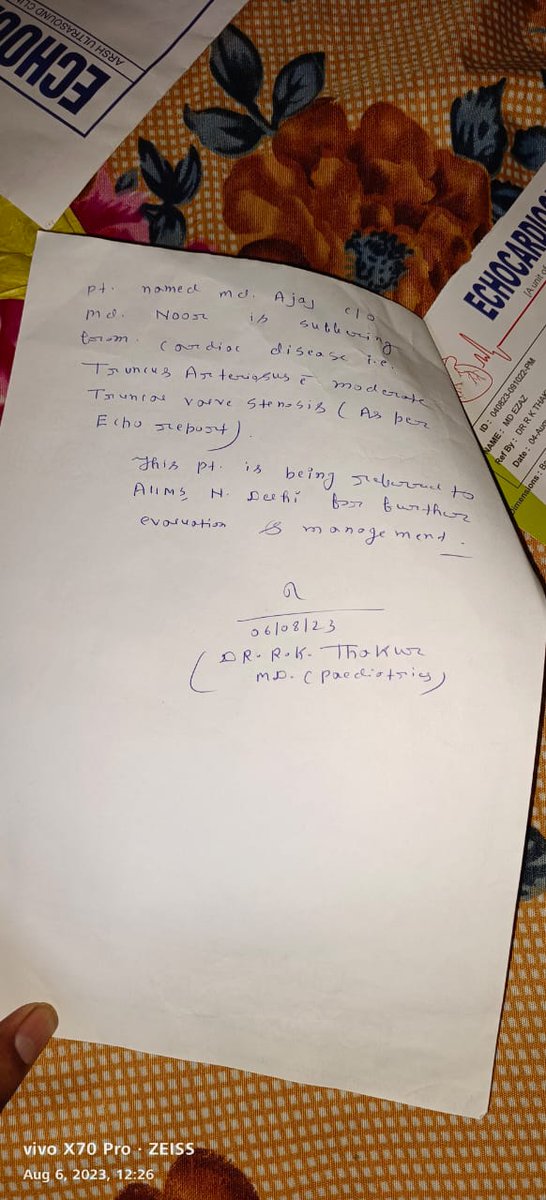 ECHO
ARSH ULTRASOUND CLIN
pt. named md. Ajaj c/o
md. Noor is suffering
from cardiac disease i.e.
Truncus Arteriosus c̄ moderate
Truncal valve stenosis (As per
Echo report).
This pt. is being referred to
AIIMS N. Delhi for further
evaluation & management.
06/08/23
(DR. R.K. Thakur
MD. (Paediatrics)
ECHOCARDIOG
(A unit of
ID : 040823-091022-PM
NAME : MD EZAZ
Ref By : DR R K THAK
Date : 04-Aug
Dimensions : Ba
vivo X70 Pro · ZEISS
Aug 6, 2023, 12:26